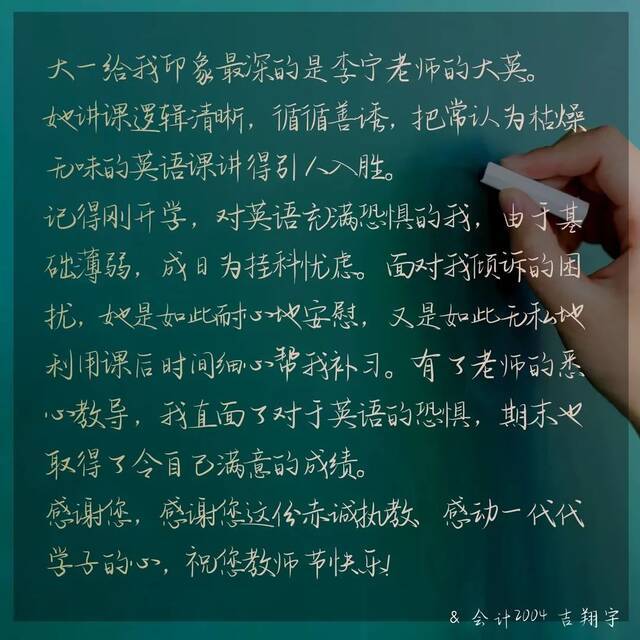 大一给我印象最深的是李宁老师的大英。
她讲课逻辑清晰，循循善诱，把常认为枯燥
无味的英语课讲得引人入胜。
记得刚开学，对英语充满恐惧的我，由于基
础薄弱，成日为挂科忧虑。面对我倾诉的困
扰，她是如此耐心地安慰，又是如此无私地
利用课后时间细心帮我补习。有了老师的悉
心教导，我直面了对于英语的恐惧，期末也
取得了令自己满意的成绩。
感谢您，感谢您这份赤诚执教、感动一代代
学子的心，祝您教师节快乐！
& 会计2004 吉翔宇